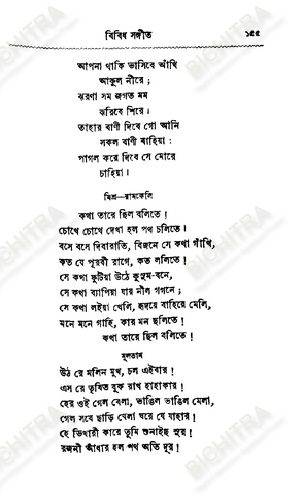 বিবিধ সঙ্গীত ১৫৫
আপনা থাকি ভাসিবে আঁখি
আকুল নীরে ;
ঝরণা সম জগত মম
ঝরিবে শিরে ।
তাহার বাণী দিবে গো আনি
সকল বাণী বাহিয়া :
পাগল করে দিবে সে মোরে
চাহিয়া ।
মিশ্র—রামকেলি
কথা তারে ছিল বলিতে !
চোখে চোখে দেখা হল পথ চলিতে !
বসে বসে দিবারাতি, বিজনে সে কথা গাঁথি,
কত যে পূরবী রাগে, কত ললিতে !
সে কথা ফুটিয়া উঠে কুসুম-বনে,
সে কথা ব্যাপিয়া যায় নীল গগনে ;
সে কথা লইয়া খেলি, হৃদয়ে বাহিরে মেলি,
মনে মনে গাহি, কার মন ছলিতে !
কথা তারে ছিল বলিতে !
মূলতান
উঠ রে মলিন মুখ, চল এইবার !
এস রে তৃষিত বুক রাখ হাহাকার !
হের ওই গেল বেলা, ভাঙিল ভাঙিল মেলা,
গেল সবে ছাড়ি খেলা ঘরে যে যাহার !
হে ভিখারী কারে তুমি শুনাইছ সুর !
রজনী আঁধার হল পথ অতি দূর !
BICHITRA
BICHITRA
BICHITRA
BICHITRA